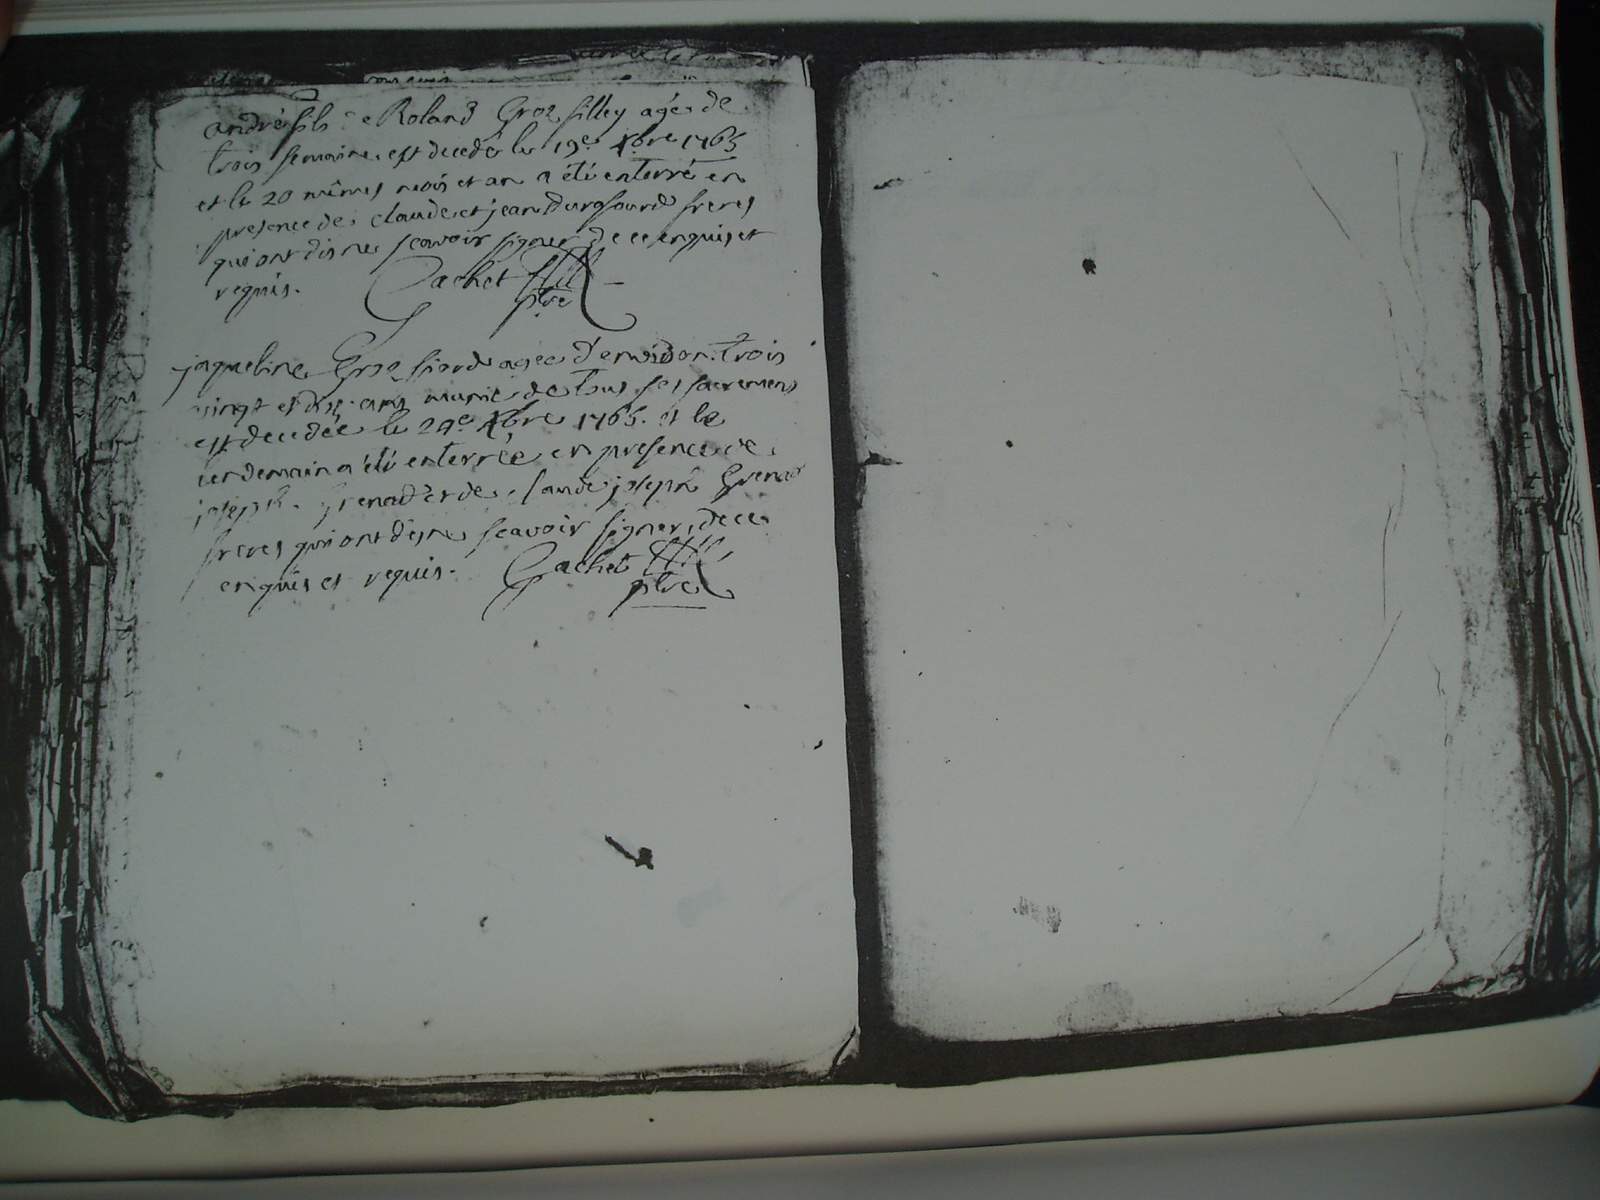 andré fils de Roland Groz filley agé de
trois semaines est decedé le 19e Xbre 1765
et le 20 mêmes mois et an a été enterré en
presence de claude et jean freres
qui ont dis ne scavoir signer de ce enquis et
requis. Gachet
ptre
jaqueline Groz agee d'environ trois
vingt et dix ans munie de tous ses sacremens
est decedée le 29e Xbre 1765. et le
lendemain a été enterrée en presence de
joseph grenad et de claude joseph Grenad
freres qui ont dis ne scavoir signer, de ce
enquis et requis. Gachet
ptre